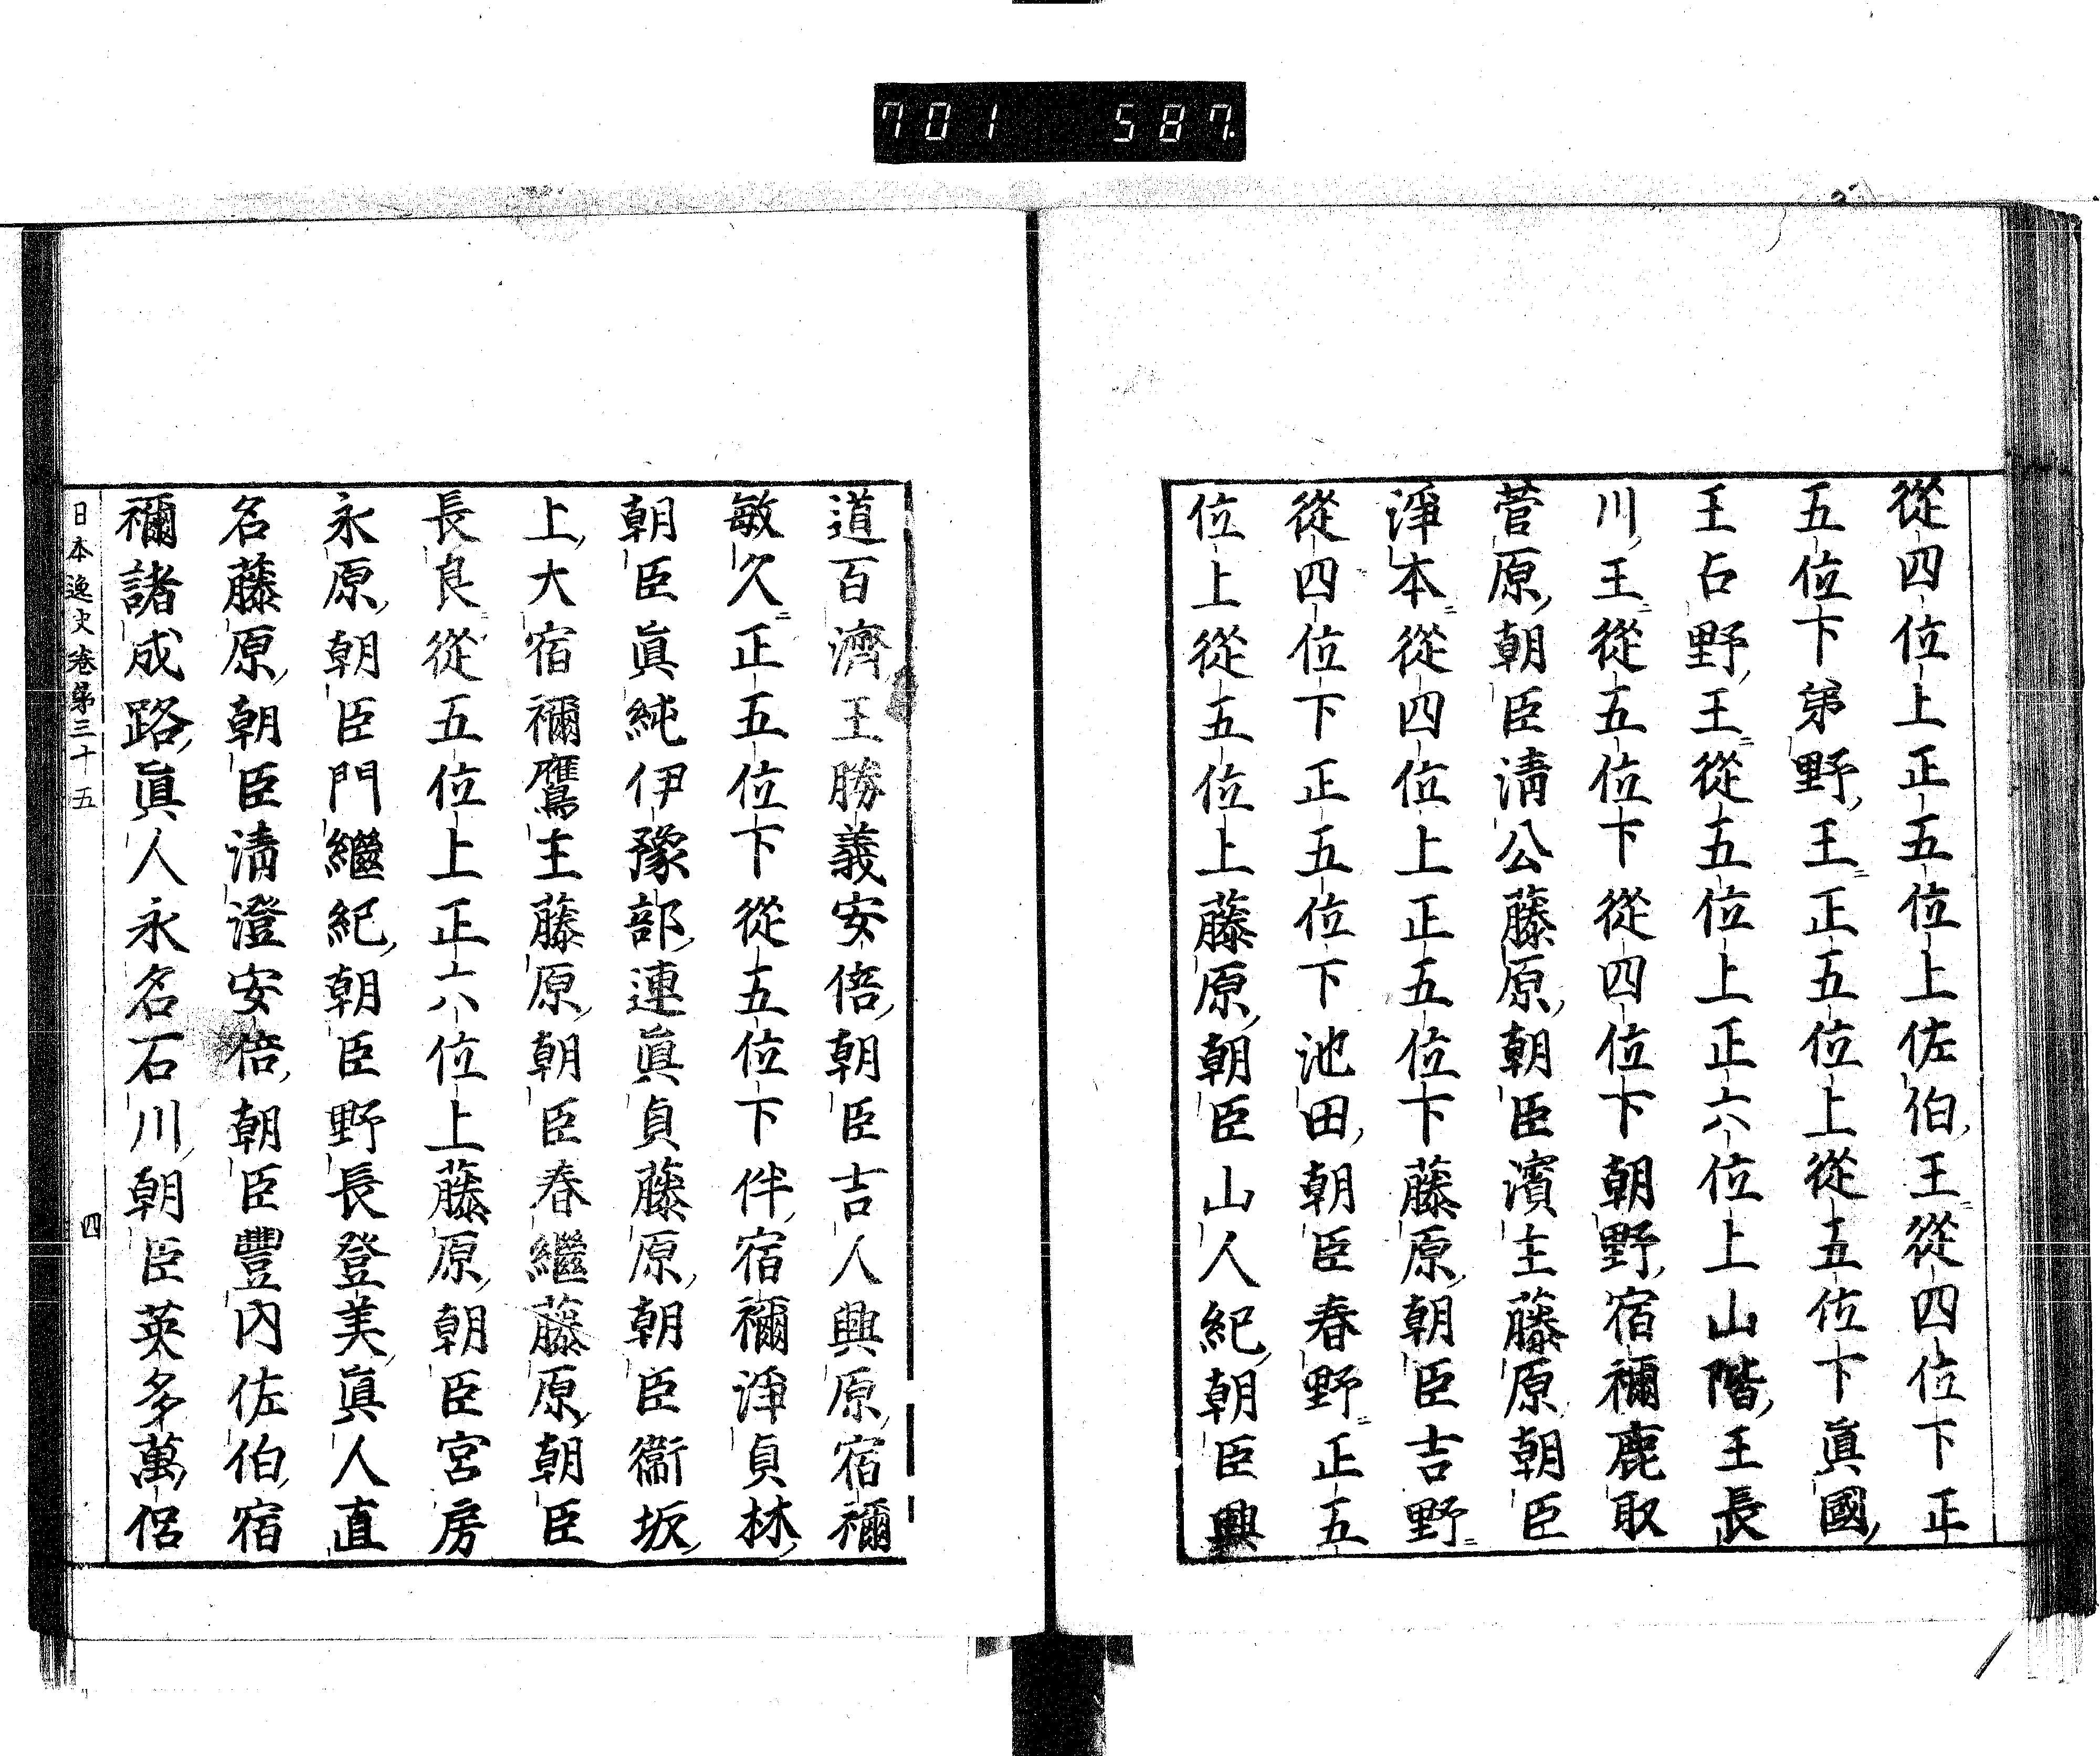 701 587.
從四位上正五位上佐伯王從四位下正
五位下弟野王正五位上從五位下眞國
王占野王從五位上正六位上山階王長
川王從五位下從四位下朝野宿禰鹿取
菅原朝臣淸公藤原朝臣濱主藤原朝臣
淨本從四位上正五位下藤原朝臣吉野
從四位下正五位下池田朝臣春野正五
位上從五位上藤原朝臣山人紀朝臣興
道百濟王勝義安倍朝臣吉人興原宿禰
敏久正五位下從五位下伴宿禰淨貞林
朝臣眞純伊豫部連眞貞藤原朝臣衞坂
上大宿禰鷹主藤原朝臣春繼藤原朝臣
長良從五位上正六位上藤原朝臣宮房
永原朝臣門繼紀朝臣野長登美眞人直
名藤原朝臣淸澄安倍朝臣豐內佐伯宿
禰諸成路眞人永名石川朝臣英多萬侶
日本逸史卷第三十五 四